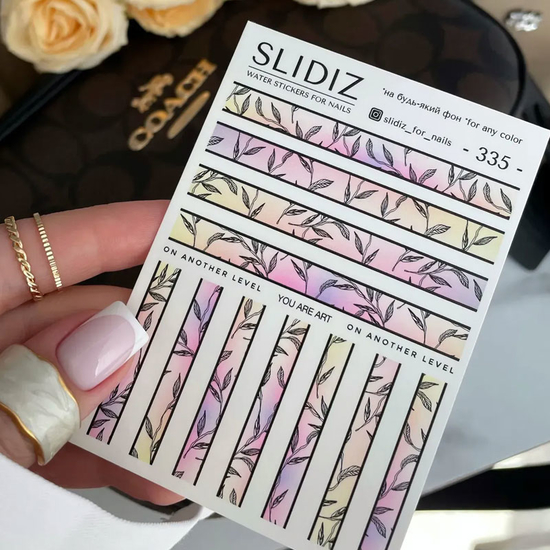 SLIDIZ
WATER STICKERS FOR NAILS
*на будь-який фон *for any color
slidiz_for_nails
- 335 -
ON ANOTHER LEVEL
YOU ARE ART
ON ANOTHER LEVEL
COACH